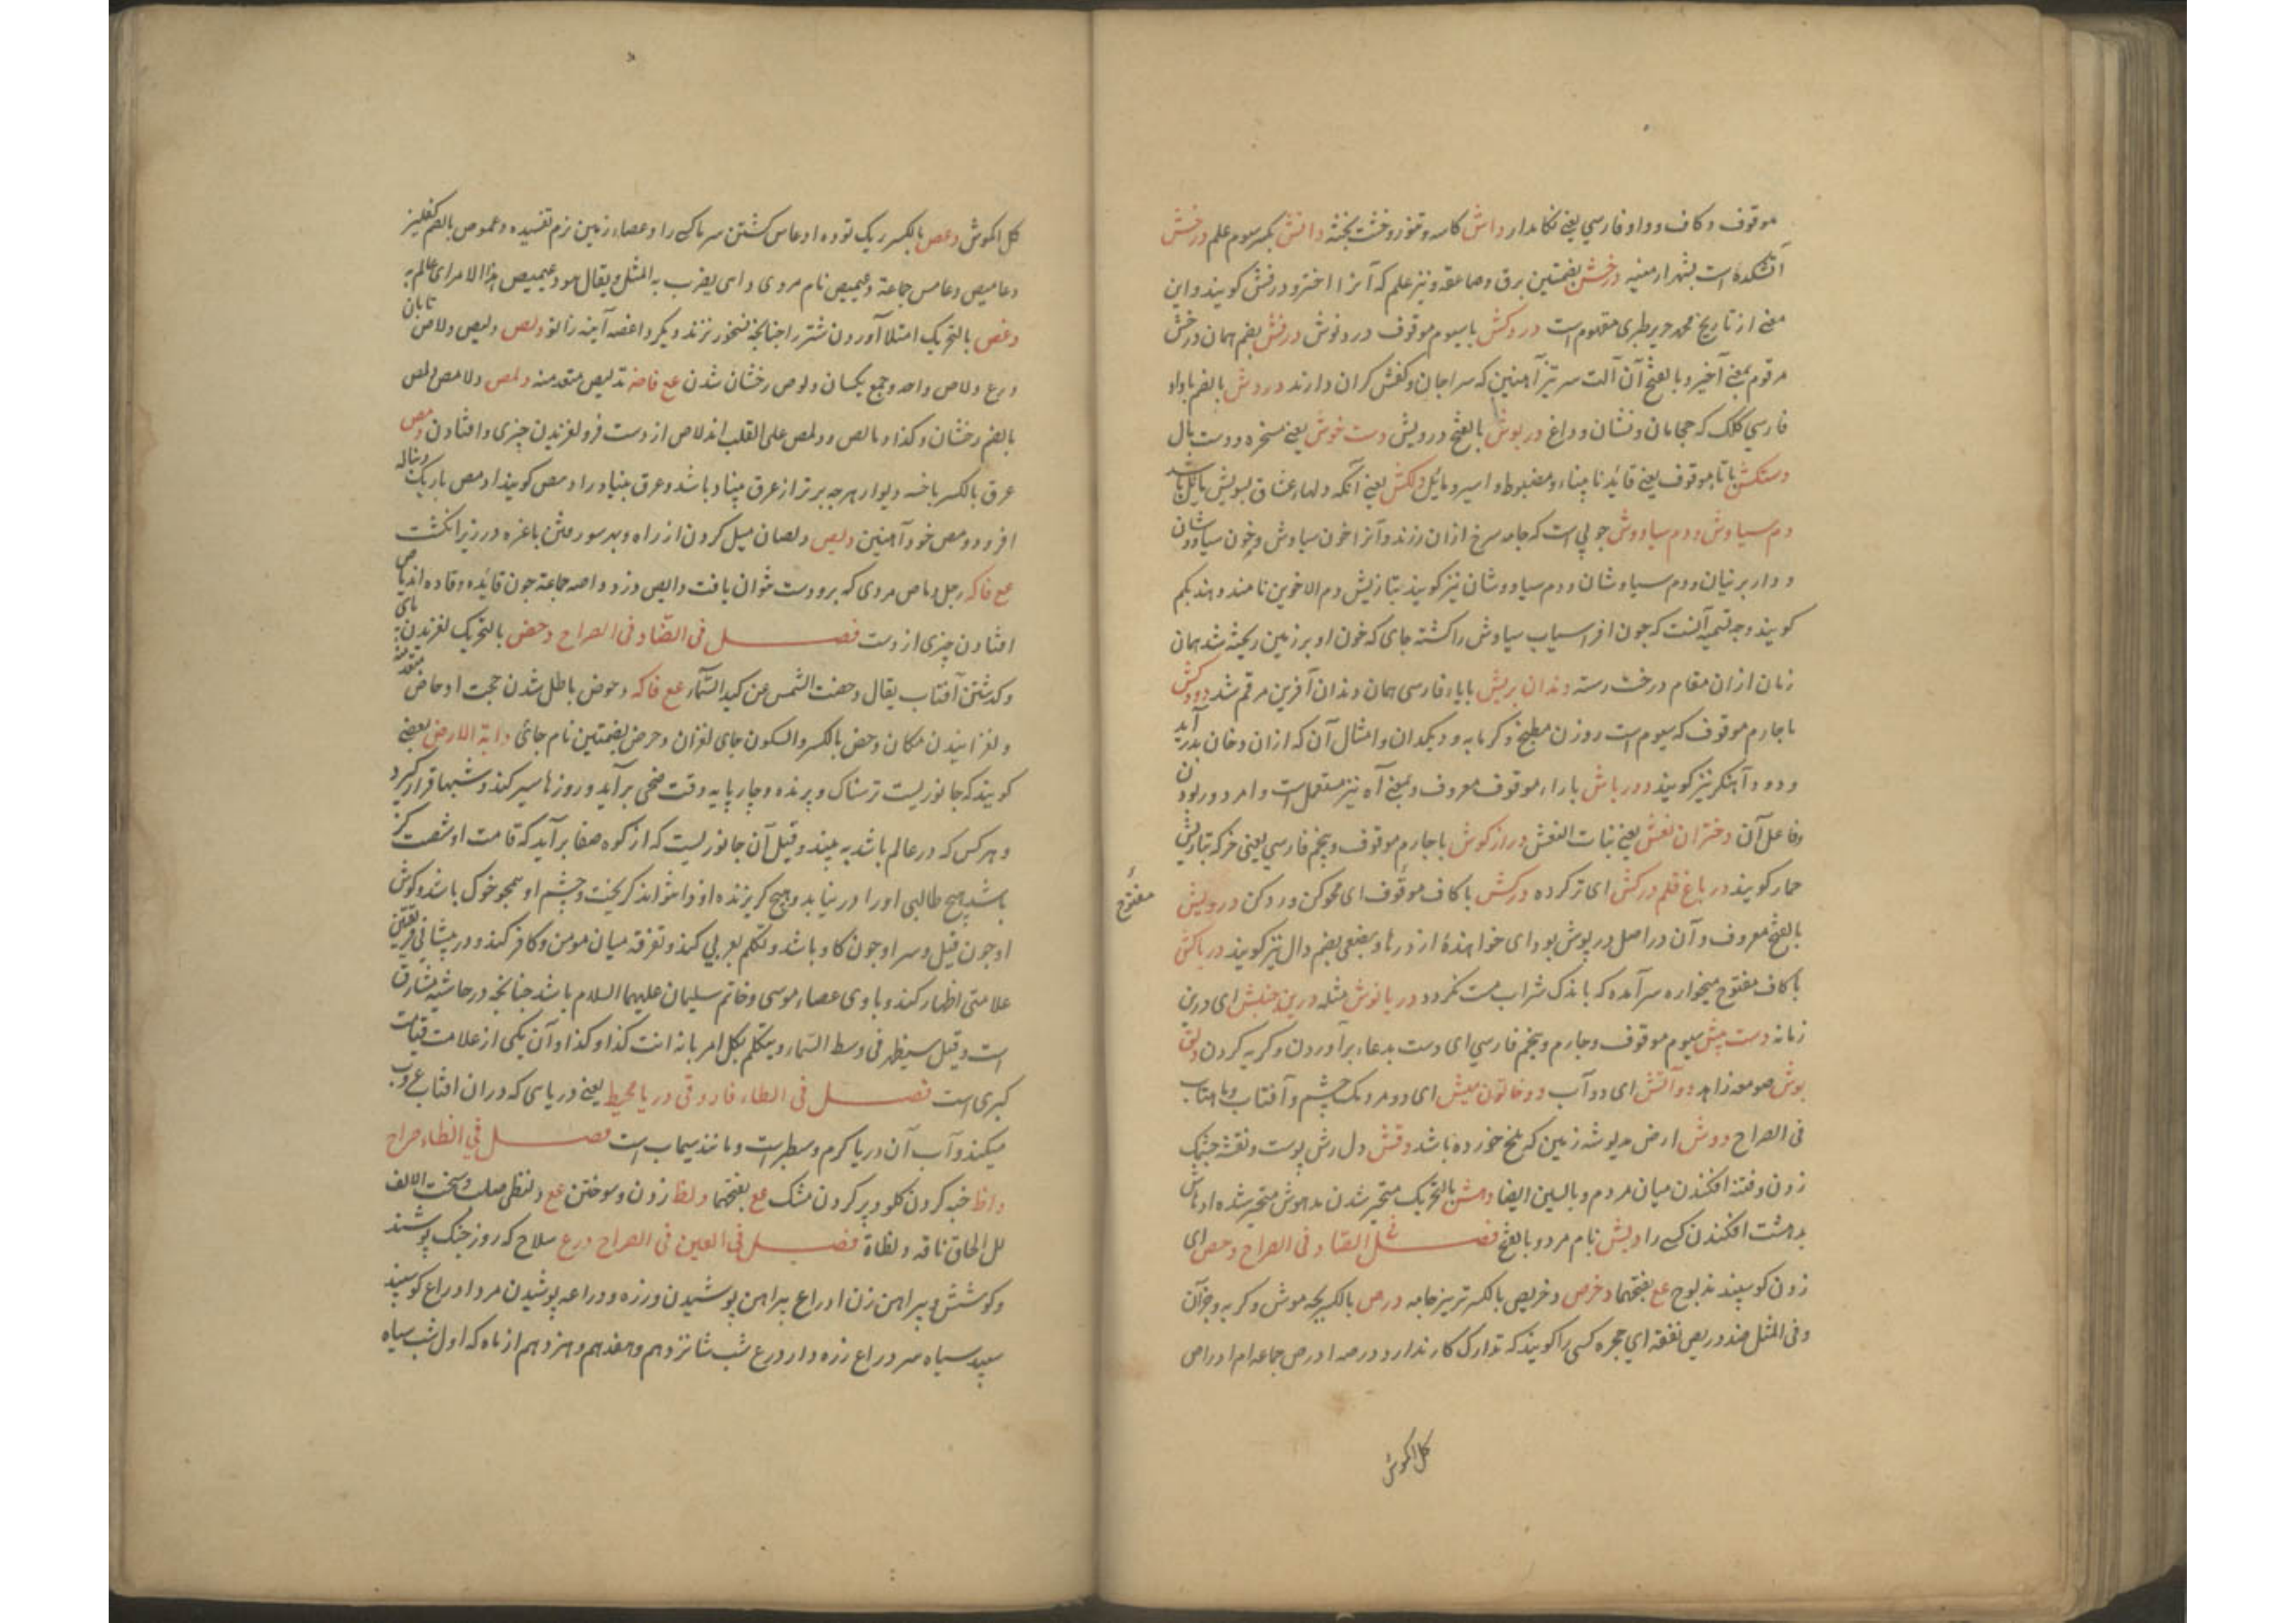 موقوف و کاف و واو فارسی یعنی نکاهدار داش کاسه و تنور و خشت پخته دانش بکسر سوم علم درخش
آتشکده است بشهر ارمنیه درخش بضمتین برق و صاعقه و نیز علم که آنرا اختر و درفش کویند و این
معنی از تاریخ محمد جریر طبری معلوم است دردکش با سیوم موقوف دردنوش درفش بضم همان درخش
مرقوم بمعنی آخر و بالفتح آن آلت سر تیز آهنین که سراجان و کفش کران دارند دروش بالضم با واو
فارسی کلک که حجامان و نشان و داغ درپوش بالفتح درویش دست خوش یعنی مسخره و دست مال
دستکش با تا موقوف یعنی قائد نابینا و مضبوط و اسیر و مائل دلکش یعنی آنکه دلهاء عشاق بسویش مائل باشد
دم سیاوش و دم سیاووش چوبی است که جامه سرخ ازان رزند و آنرا خون سیاوش و خون سیاوشان
و دار برنیان و دم سیاوشان و دم سیاووشان نیز کویند بتازیش دم الاخوین نامند و هند بکم
کویند وجه تسمیه آنست که چون افراسیاب سیاوش را کشته جای که خون او بر زمین ریخته شد همان
زمان ازان مقام درخت رسته دندان بریش با باء فارسی همان دندان آفرین مرقم شد دودکش
با چارم موقوف که سیوم است روزن مطبخ و کرمابه و دیکدان و امثال آن که ازان دخان بدر آید
و دود آهنکر نیز کویند دورباش با راء موقوف معروف و بمعنی آه نیز مستعمل است و امر دور بودن
و فاعل آن دختران نعش یعنی بنات النعش درازکوش با چارم موقوف و پنجم فارسی یعنی خر که بتازیش
حمار کویند در باغ قلم درکش ای تر کرده درکش با کاف موقوف ای محو کن و رد کن درویش
مفتوح
بالفتح معروف و آن در اصل درپوش بود ای خواهنده از درها و بعضی بضم دال نیز کویند دریاکش
با کاف مفتوح میخواره سرآمده که باندک شراب مست نکردد دریانوش مثله درین جنبش ای درین
زمانه دست پیش سیوم موقوف و چارم و پنجم فارسی ای دست بدعاء برآوردن و کریه کردن دلق
پوش صومعه زاهد دو آتش ای دو آب دو خاتون بینش ای دو مردمک چشم و آفتاب و ماهتاب
فی الصراح دوش ارض مدبوشه زمین که ملخ خورده باشد دقش دل رش پوست و نقشه جنبک
زدن و فتنه افکندن میان مردم و بالسین ایضا دهش بالتحریک متحیر شدن مدهوش متحیر شده ادهاش
بدهشت افکندن کسی را دیش نام مرد و بالفتح فصل فی الصاد فی الصراح دحص ای
زدن کوسپند مذبوح عع بفتحهما دخرص و دخریص بالکسر تریز جامه درص بالکسر بچه موش و کربه و جز آن
و فی المثل ضل دریص نفقه ای جحره کسی را کویند که تدارک کار ندارد درصه ادرص جماعه ام ادراص
کل اکموش
کل اکموش دعص بالکسر ریک توده ادعاص کشتن سرما کسی را دعصاء زمین نرم تفسیده دعموص بالضم کفلیز
دعامیص دعامص جماعة دعیمیص نام مردی داهی یضرب به المثل و یقال هو دعیمیص هذا الامر ای عالم به
دغص بالتحریک امتلا آوردن شتر را چنانچه نشخور نزند و یکر داغصه آینه زانو دلص دلیص و دلاص تابان
درع دلاص واحد و جمع یکسان دلوص رخشان شدن عع فاصه تدلیص متعد منه دلمص دلامص دلمص
بالضم رخشان و کذا دمالص و دملص علی القلب اندلاص از دست فرو لغزیدن چیزی و افتادن دمص
عرق بالکسر باخسه دیوار هرچه برتر از عرق بنیاد باشد و عرق بنیاد را دمص کویند ادمص باریک دنباله
ابرو دومص خود آهنین دیص دیصان میل کردن از راه و بهر سو رفتن با غزه در زیر انکشت
عع فاکه رجل دیاص مردی که برو دست نتوان یافت دایص دزد داصه جماعة چون قائده و قاده اندیاص
افتادن چیزی از دست فصل فی الضاد فی الصراح دحض بالتحریک لغزیدن پای
و کذشتن آفتاب یقال دحضت الشمس عن کبد السماء عع فاکه دحوض باطل شدن حجت ادحاض متعد منه
و لغزانیدن مکان دحض بالکسر و السکون جای لغزان دحرض بضمتین نام جائی دابة الارض بعضی
کویند که جانوریست ترسناک و پرنده و چارپایه وقت ضحی برآید و روزها سیر کند و شبها قرار کیرد
و هر کس که در عالم باشد به بیند و قیل آن جانوریست که از کوه صفا برآید که قامت او شصت کز
باشد هیچ طالبی او را در نیابد و هیچ کریزنده ازو نتواند کریخت و چشم او همچو خوک باشد و کوش
او چون فیل و سر او چون کاو باشد و تکلم بعربی کند و تفرقه میان مومن و کافر کند و در پیشانی فریقین
علامتی اظهار کند و با وی عصاء موسی و خاتم سلیمان علیهما السلام باشد چنانچه در حاشیه مشارق
است و قیل سیظهر فی وسط السماء و یتکلم بکل امر بانه انت کذا و کذا و آن یکی از علامت قیامت
کبری است فصل فی الطاء فاروقی دریا محیط یعنی دریای که دران افتاب غروب
میکند و آب آن دریا کرم و سطبر است و مانند سیماب است فصل فی الظاء صراح
داظ خبه کردن کلو و پر کردن مشک عع بفتحهما دلظ زدن و سوختن عع دلنظی صلب و سخت الالف
لل الحاق ناقه دلنظاة فصل فی العین فی الصراح درع سلاح که روز جنک پوشند
و کوشش و پیراهن زن ادراع پیراهن پوشیدن و زره و دراعه پوشیدن مرد ادراع کوسپند
سپید سیاه سر دراع زره دار درع شب شانزدهم و هفدهم و هژدهم از ماه که اول شب سیاه